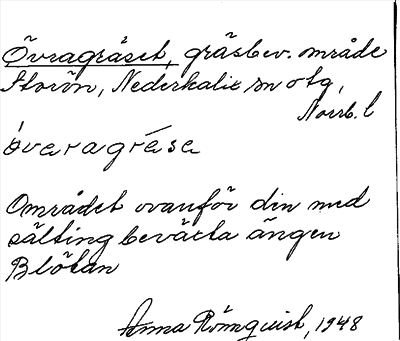 Övragräset, gräsbev. område
Storön, Nederkalix sn otg,
Norrb. l
òveragrésa
Området ovanför din med
sälting beväxta ängen
Blötan
Anna Römquist, 1948